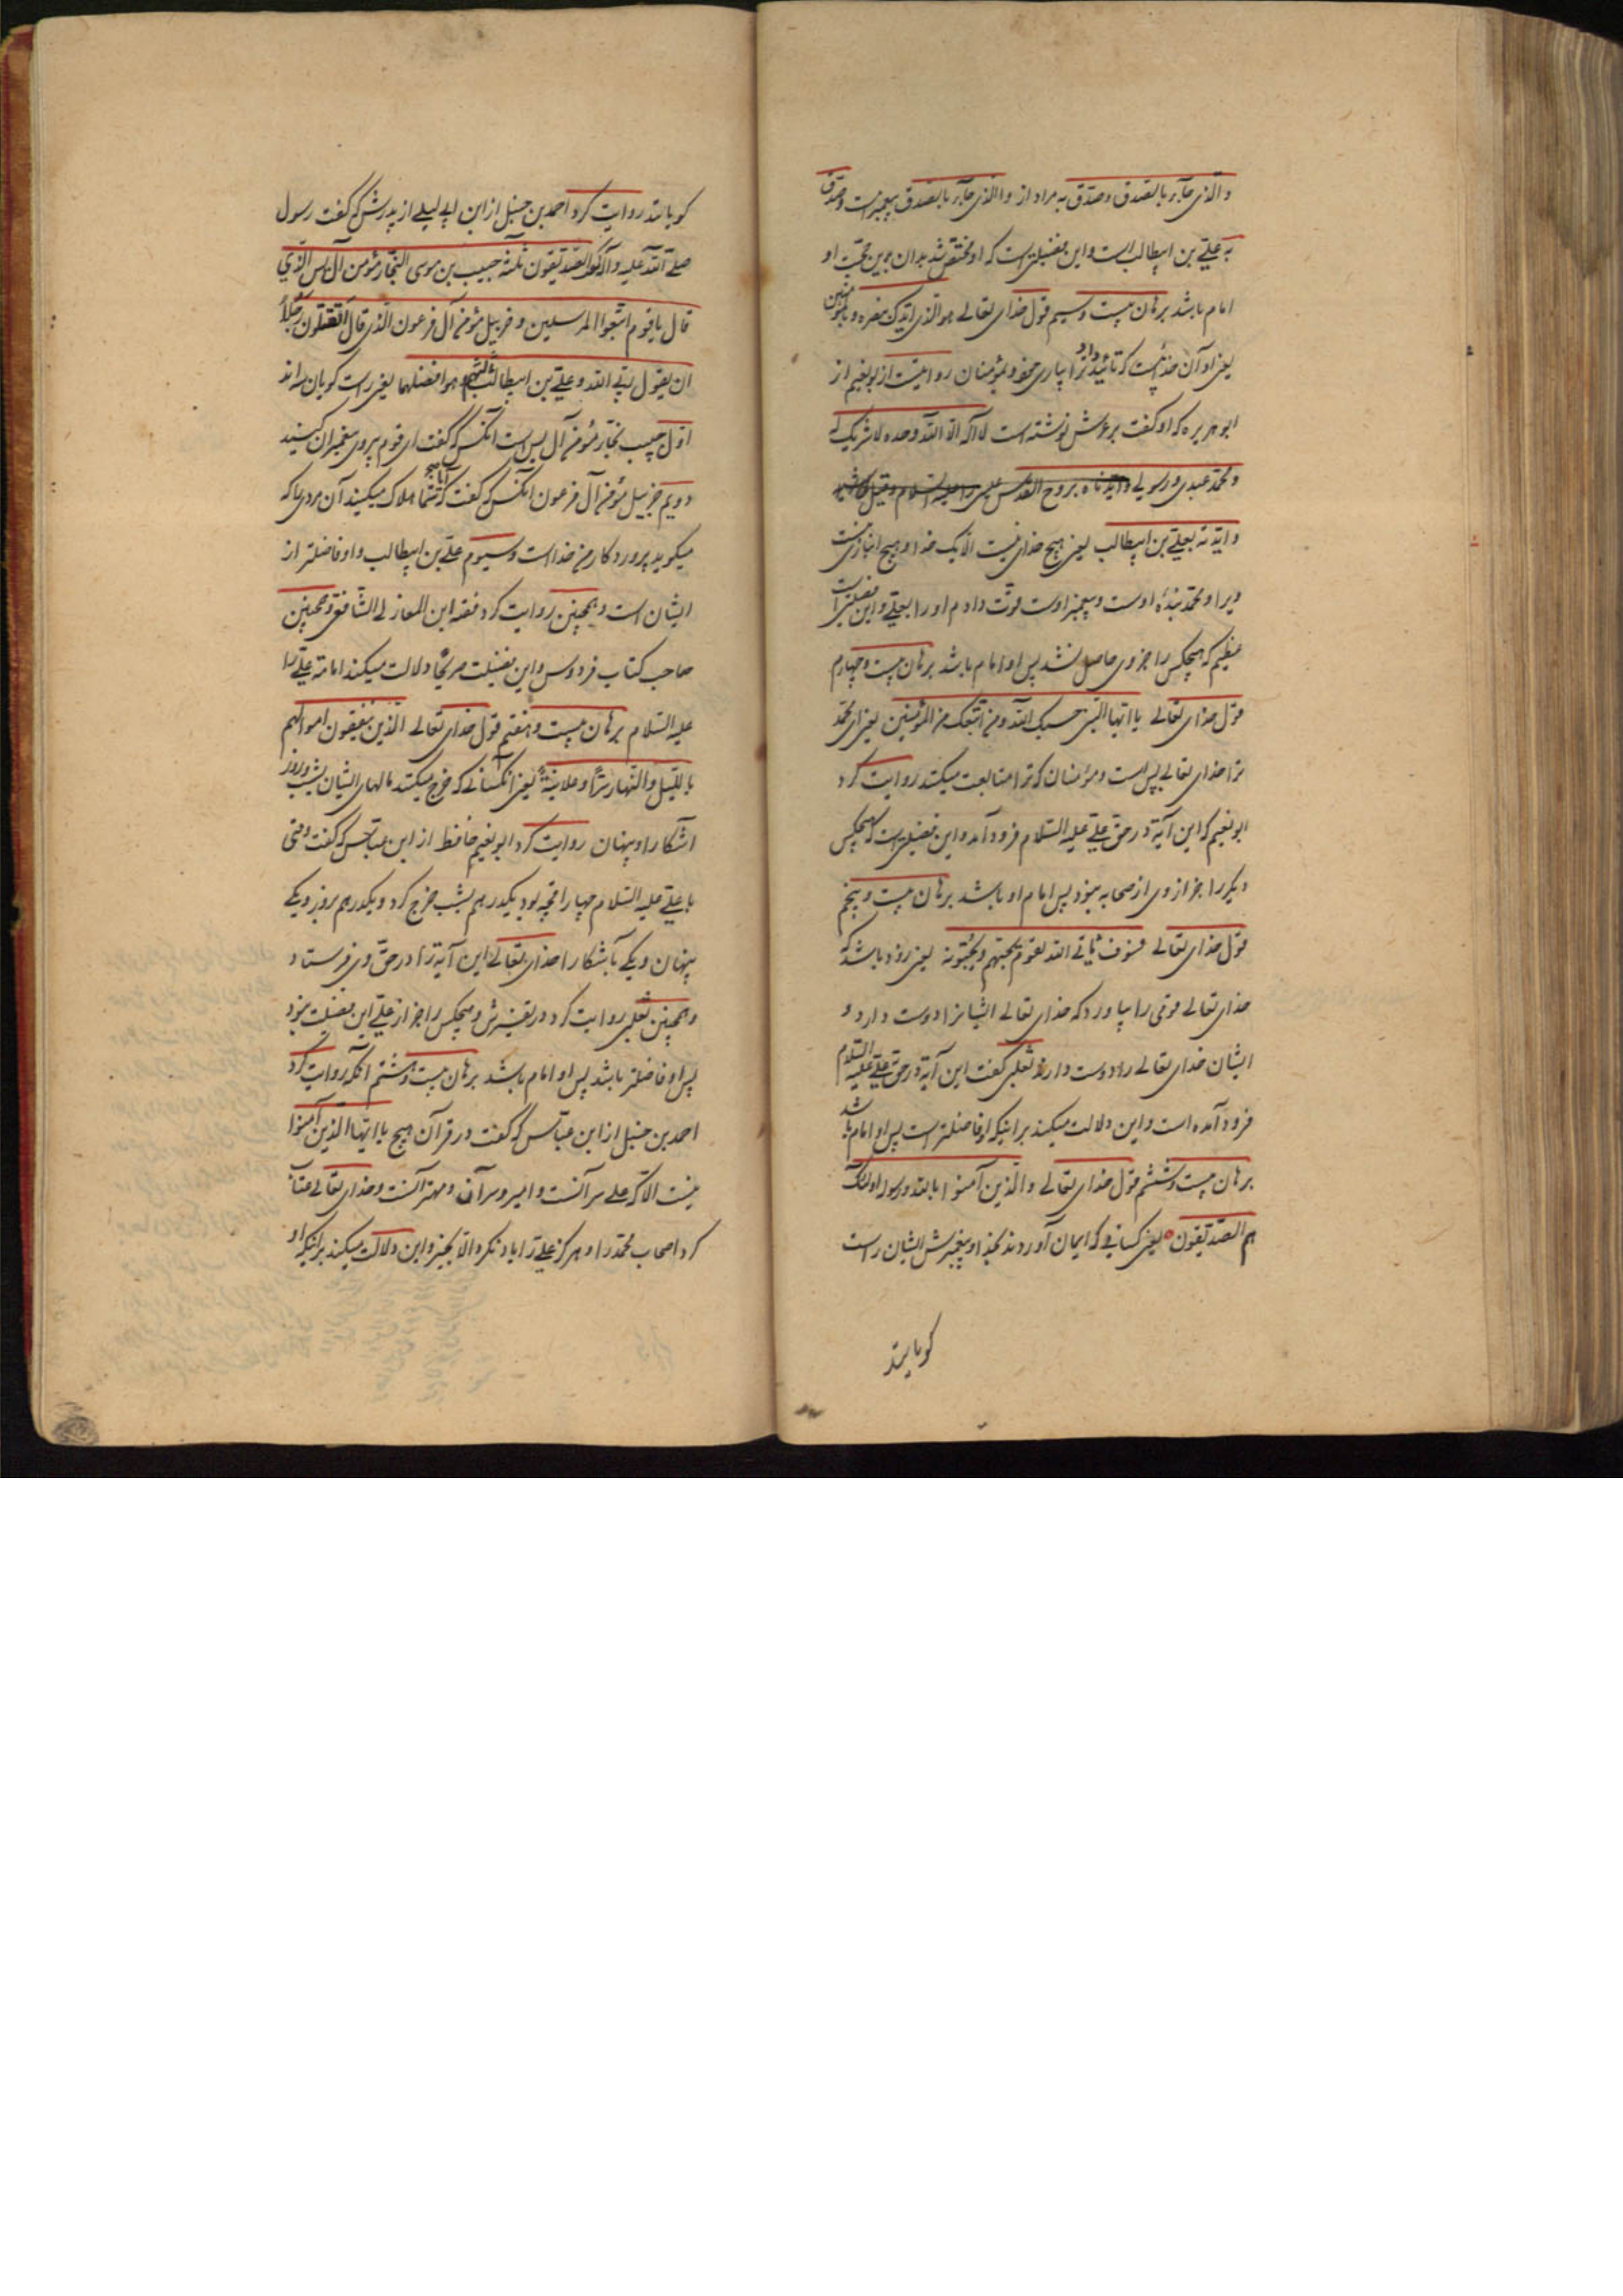 والّذی جآء بالصّدق وصدّق به مراد از والّذی جآء بالصّدق پیغمبرست وصدّق
به علیّ بن ابیطالب است واین فضیلتی است که او مختص شد بدان پس حجّت او
امام باشد برهان بیست وسیم قول خدای تعالی هو الّذی ایّدک بنصره وبالمؤمنین
یعنی او آن خداییست که تائید داد ترا بیاری خود وبمؤمنان روایتست از ابو نعیم از
ابو هریره که او گفت بر عرش نوشته است لا اله الّا اللّه وحده لا شریک لی
ومحمّد عبدی ورسولی وایدناه بروح القدس علی علیه السلام
وایّدته بعلیّ بن ابیطالب یعنی هیچ خدای نیست الّا یک خدا وهیچ انبازی نیست
ویرا ومحمّد بندهٔ اوست وپیغمبر اوست قوّت دادم او را بعلیّ واین فضیلتی است
عظیم که هیچکس را جز وی حاصل نشد پس او امام باشد برهان بیست وچهارم
قول خدای تعالی یا ایّها النّبی حسبک اللّه ومن اتّبعک من المؤمنین یعنی ای محمّد
ترا خدای تعالی بس است ومؤمنان که ترا متابعت میکنند روایت کرد
ابو نعیم که این آیة در حقّ علیّ علیه السّلام فرود آمد واین فضیلتی است که هیچکس
دیگر را جز از وی از صحابه نبود پس امام او باشد برهان بیست وپنجم
قول خدای تعالی فسوف یأتی اللّه بقوم یحبّهم ویحبّونه یعنی زود باشد که
خدای تعالی قومی را بیاورد که خدای تعالی ایشانرا دوست دارد و
ایشان خدای تعالی را دوست دارند ثعلبی گفت این آیة در حق علیّ علیه السّلام
فرود آمده است واین دلالت میکند برانیکه او فاضلتر است پس او امام باشد
برهان بیست وششم قول خدای تعالی والّذین آمنوا باللّه ورسوله اولئک
هم الصّدّیقون یعنی کسانی که ایمان آوردند بخدا وپیغمبرش ایشان راست
کویانند
کویانند روایت کرد احمد بن حنبل از ابن ابی لیلی از پدرش که گفت رسول
صلّی اللّه علیه وآله که الصّدّیقون ثلثة حبیب بن موسی النّجار مؤمن آل یس الّذی
قال یا قوم اتّبعوا المرسلین وخربیل مؤمن آل فرعون الّذی قال اتقتلون رجلاً
ان یقول ربّی اللّه وعلیّ بن ابیطالب الثّالث وهو افضلهما یعنی راست کویان سه اند
اوّل حبیب نجّار مؤمن آل یس است آنکس که گفت ای قوم پیروی پیغمبران کنید
دویم خربیل مؤمن آل فرعون آنکس که گفت که آیا شما هلاک میکنید آن مردی را که
میکوید پروردکار من خداست وسیوم علیّ بن ابیطالب واو فاضلتر از
ایشان است وهمچنین روایت کرد فقه ابن المغازلی الشّافعی وهمچنین
صاحب کتاب فردوس واین فضیلت صریحًا دلالت میکند امامة علیّ را
علیه السّلام برهان بیست وهفتم قول خدای تعالی الّذین ینفقون اموالهم
باللّیل والنّهار سرًّا وعلانیةً یعنی آنکسانی که خرج میکنند مالهای ایشان بشب وروز
آشکارا وپنهان روایت کرد ابو نعیم حافظ از ابن عبّاس که گفت وقتی
با علیّ علیه السّلام چهار اقچه بود یکدرهم بشب خرج کرد ویکدرهم بروز ویکی
پنهان ویکی بآشکارا خدای تعالی این آیة را در حقّ وی فرستاد
وهمچنین ثعلبی روایت کرد در تفسیرش وهیچکس را جز از علیّ این فضیلت نبود
پس او فاضلتر باشد پس او امام باشد برهان بیست وهشتم آنکه روایت کرد
احمد بن حنبل از ابن عبّاس که گفت در قرآن هیچ یا ایّها الّذین آمنوا
نیست الّا که علی سر آنست وامیر وسر آن ومهتر آنست وخدای تعالی عتاب
کرد اصحاب محمّد را وهرکز علیّ را یاد نکرد الّا بخیر واین دلالت میکند برانیکه او